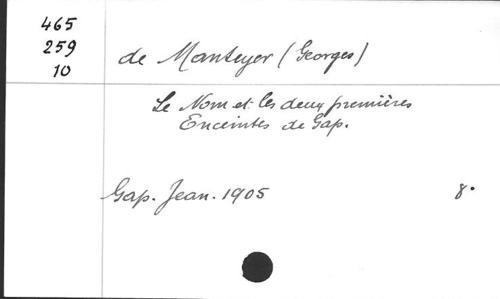 465
259
10
de Manteyer (Georges)
Le Nom et les deux premières
Enceintes de Gap.
Gap. Jean. 1905 8°